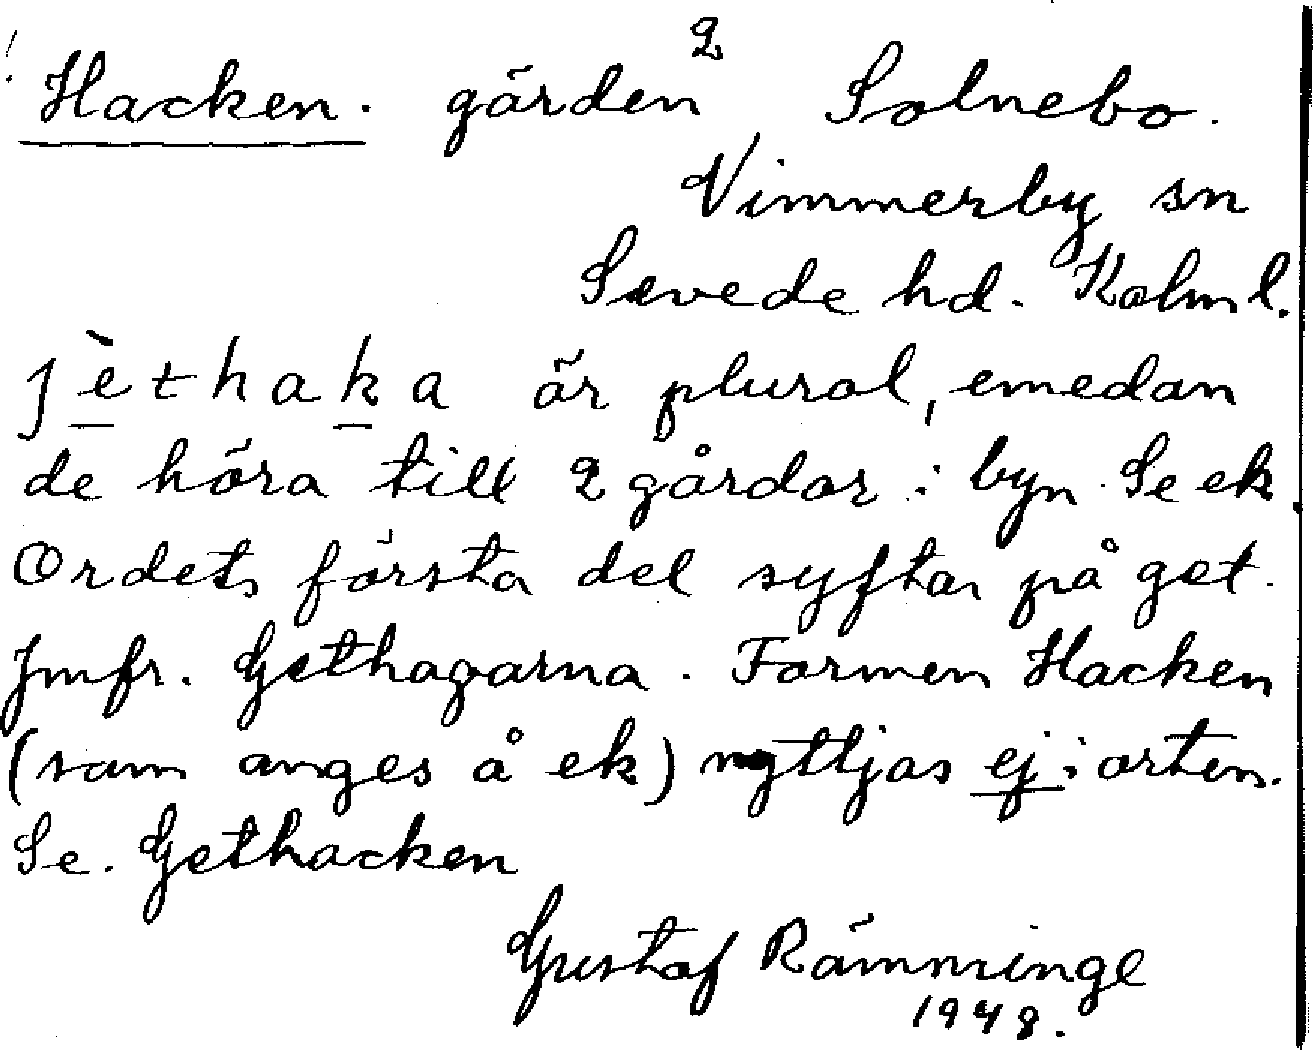 ! Hacken. gården 2 Solnebo.
Vimmerby sn
Sevede hd. Kalm l.
jèthaka är plural, emedan
de höra till 2 gårdar i byn. Se ek.
Ordets första del syftar på get.
Jmfr. Gethagarna. Formen Hacken
(som anges å ek) nyttjas ej i orten.
Se. Gethacken
Gustaf Rämminge
1948.